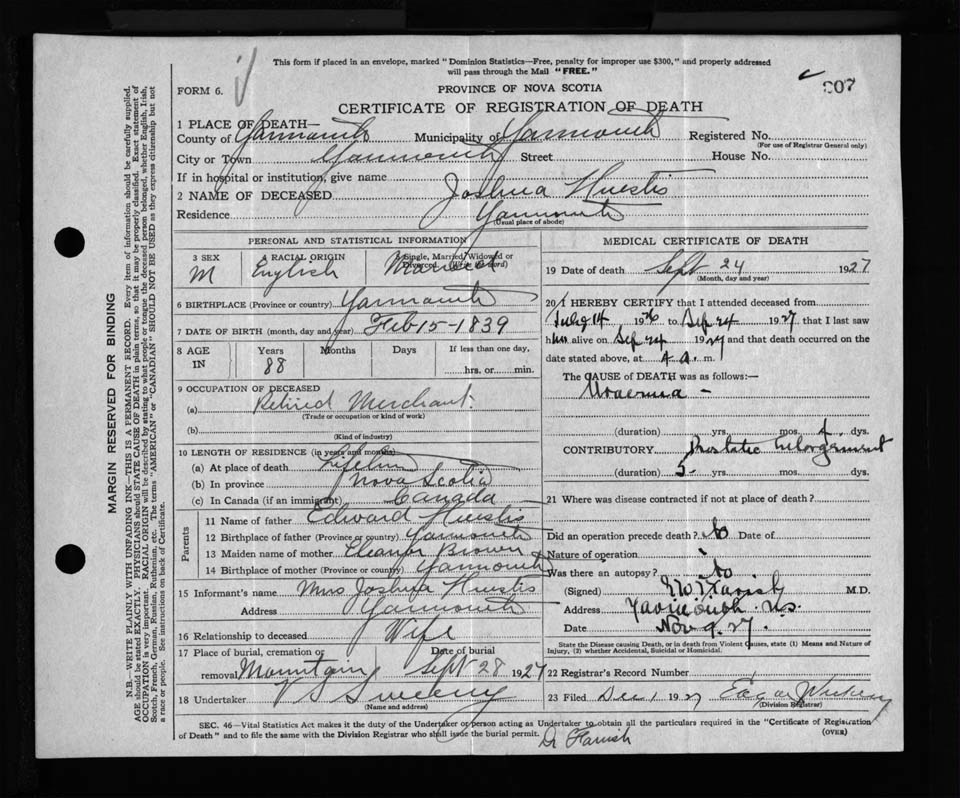 This form if placed in an envelope, marked "Dominion Statistics—Free, penalty for improper use $300," and properly addressed
will pass through the Mail "FREE."
FORM 6.
PROVINCE OF NOVA SCOTIA
907
CERTIFICATE OF REGISTRATION OF DEATH
1 PLACE OF DEATH—
County of Yarmouth Municipality of Yarmouth Registered No.
(For use of Registrar General only)
City or Town Yarmouth Street House No.
If in hospital or institution, give name
2 NAME OF DECEASED Joshua Huestis
Residence Yarmouth
(Usual place of abode)
PERSONAL AND STATISTICAL INFORMATION
3 SEX 4 RACIAL ORIGIN 5 Single, Married, Widowed or Divorced (Write the word)
M English Married
6 BIRTHPLACE (Province or country) Yarmouth
7 DATE OF BIRTH (month, day and year) Feb 15-1839
8 AGE IN Years Months Days If less than one day,
88 hrs. or min.
9 OCCUPATION OF DECEASED
(a) Retired Merchant
(Trade or occupation or kind of work)
(b)
(Kind of industry)
10 LENGTH OF RESIDENCE (in years and months)
(a) At place of death Lifetime
(b) In province Nova Scotia
(c) In Canada (if an immigrant) Canada
Parents
11 Name of father Edward Huestis
12 Birthplace of father (Province or country) Yarmouth
13 Maiden name of mother Eleanor Brown
14 Birthplace of mother (Province or country) Yarmouth
15 Informant's name Mrs Joshua Huestis
Address Yarmouth
16 Relationship to deceased Wife
17 Place of burial, cremation or removal Mountain Date of burial Sept 28 1927
18 Undertaker V S Sweeny
(Name and address)
MEDICAL CERTIFICATE OF DEATH
19 Date of death Sept 24 1927
(Month, day and year)
20 I HEREBY CERTIFY that I attended deceased from
July 14 1926 to Sep 24 1927 that I last saw
him alive on Sep 24 1927 and that death occurred on the
date stated above, at 4 a. m.
The CAUSE of DEATH was as follows:—
Uraemia -
(duration) yrs. mos. 4 dys.
CONTRIBUTORY Prostatic Enlargement
(duration) 5 yrs. mos. dys.
21 Where was disease contracted if not at place of death?
Did an operation precede death? No Date of
Nature of operation
Was there an autopsy? No
(Signed) M.D.
Address Yarmouth N.S.
Date Nov 9. 27.
State the Disease causing Death, or in death from Violent Causes, state (1) Means and Nature of
Injury, (2) whether Accidental, Suicidal or Homicidal.
22 Registrar's Record Number
23 Filed Dec 1 1927 Edgar
(Division Registrar)
SEC. 46—Vital Statistics Act makes it the duty of the Undertaker or person acting as Undertaker to obtain all the particulars required in the "Certificate of Registration
of Death" and to file the same with the Division Registrar who shall issue the burial permit.
(OVER)
Dr Farish
MARGIN RESERVED FOR BINDING
N.B.—WRITE PLAINLY WITH UNFADING INK—THIS IS A PERMANENT RECORD. Every item of information should be carefully supplied.
AGE should be stated EXACTLY. PHYSICIANS should STATE CAUSE OF DEATH in plain terms, so that it may be properly classified. Exact statement of
OCCUPATION is very important. RACIAL ORIGIN will be described by stating to what people or tongue the deceased person belonged, whether English, Irish,
Scotch, French, German, Russian, Ruthenian, etc. The terms "AMERICAN" or "CANADIAN" SHOULD NOT BE USED as they express citizenship but not
a race or people. See instructions on back of Certificate.